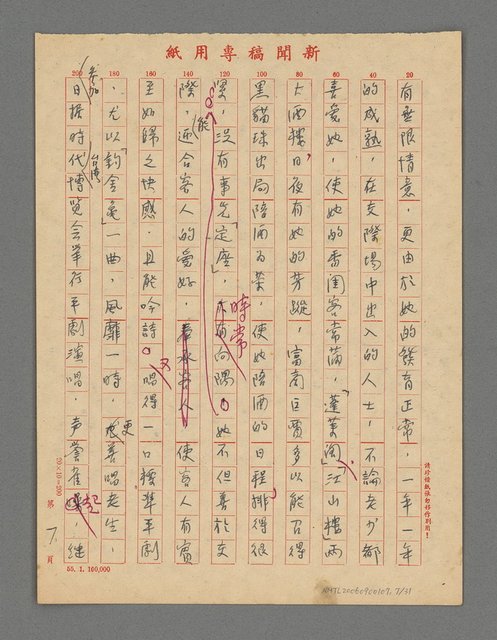 紙用專稿聞新
20 40 60 80 100 120 140 160 180 200
有無限情意，更由於她的發育正常，一年一年
的成熟，在交際場中出入的人士，不論老少都
喜愛她，使她的香閨客常滿，「蓬萊閣」江山樓」兩
大酒樓日夜有她的芳蹤，富商巨賈多以能召得
黑貓珠出局陪酒為榮，使她陪酒的日程排得很
緊，沒有事先「定座」，時常向隅。她不但善於交
際，能迎合客人的愛好，使客人有賓
至如歸之快感，且能吟詩。又唱得一口標準平劇
，尤以「釣金龜」一曲，風靡一時，更善唱老生，
參加
日据時代台灣博覽会舉行平劇演唱，声譽雀起，継
請珍惜紙張勿移作別用！
20×10=200
第 7 頁
55.1.100,000
NMTL20060900107, 7/31